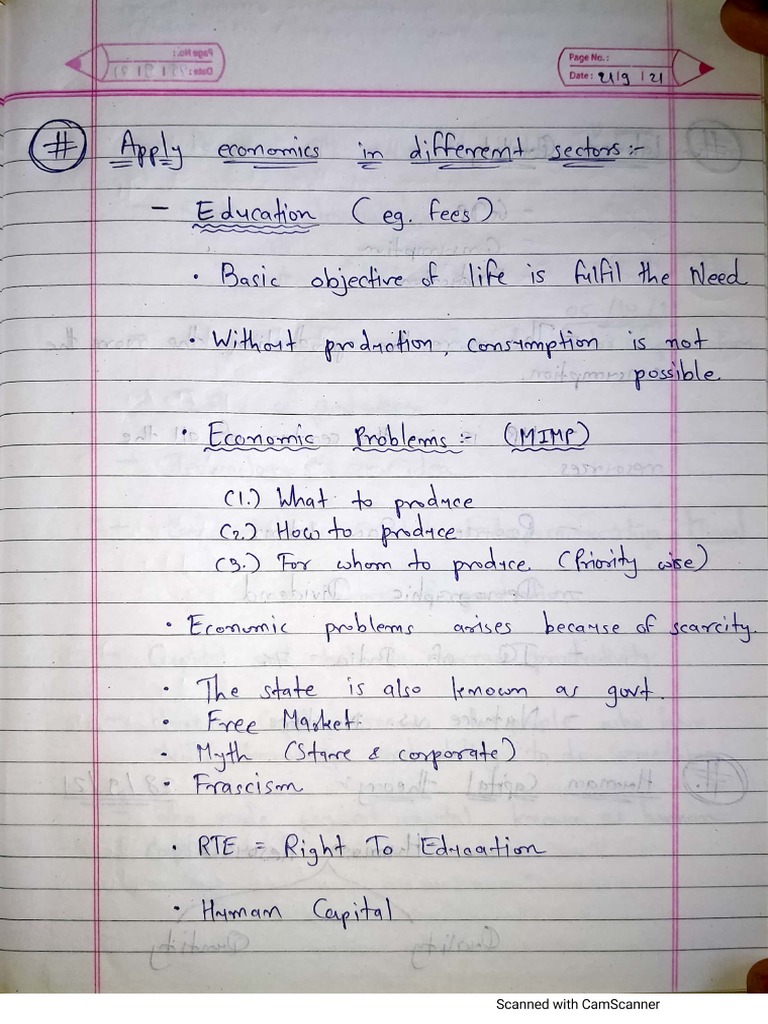 Page No.:
Date: 21/9/21
# Apply economics in different sectors:-
- Education (eg. fees)
• Basic objective of life is fulfil the Need
• Without production, consumption is not
possible.
• Economic Problems:- (MIMP)
(1.) What to produce
(2.) How to produce
(3.) For whom to produce. (Priority wise)
• Economic problems arises because of scarcity.
• The state is also known as govt.
• Free Market.
• Myth (Stare & corporate)
• Frascism
• RTE = Right To Education
• Human Capital
Scanned with CamScanner